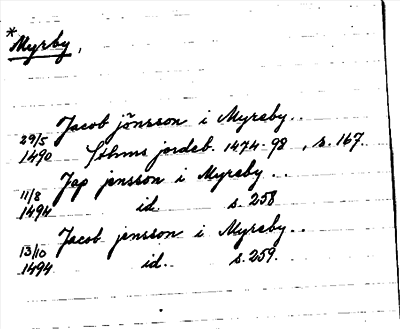 *Myrby,
Jacob jönsson i Myreby..
29/5
1490 Söhms jordeb. 1474-98, s. 167.
Jap jensson i Myreby...
11/8
1494 id. s. 258
Jacob jensson i Myreby..
13/10
1494 id. s. 259.